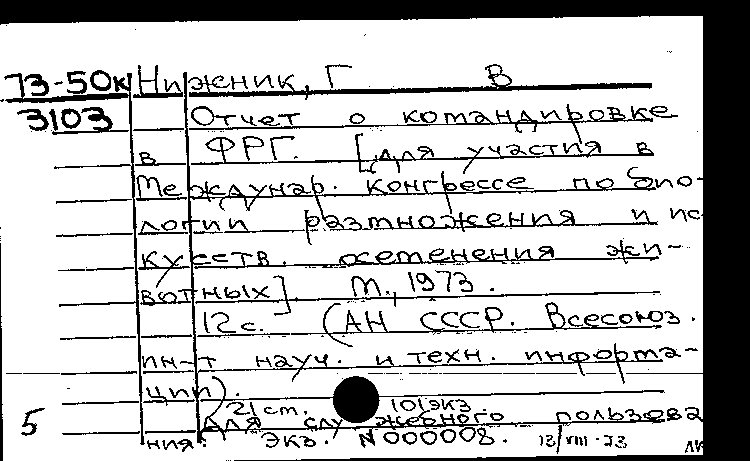 73-50к Нижник, Г В
3103 Отчет о командировке
в ФРГ. [для участия в
Междунар. конгрессе по био-
логии размножения и ис-
кусств. осеменения жи-
вотных]. М., 1973.
12 с. (АН СССР. Всесоюз.
ин-т науч. и техн. информа-
ции).
21 ст. 101 экз
5 Для служебного пользова
ния. Экз. N000008. 13/VIII-73